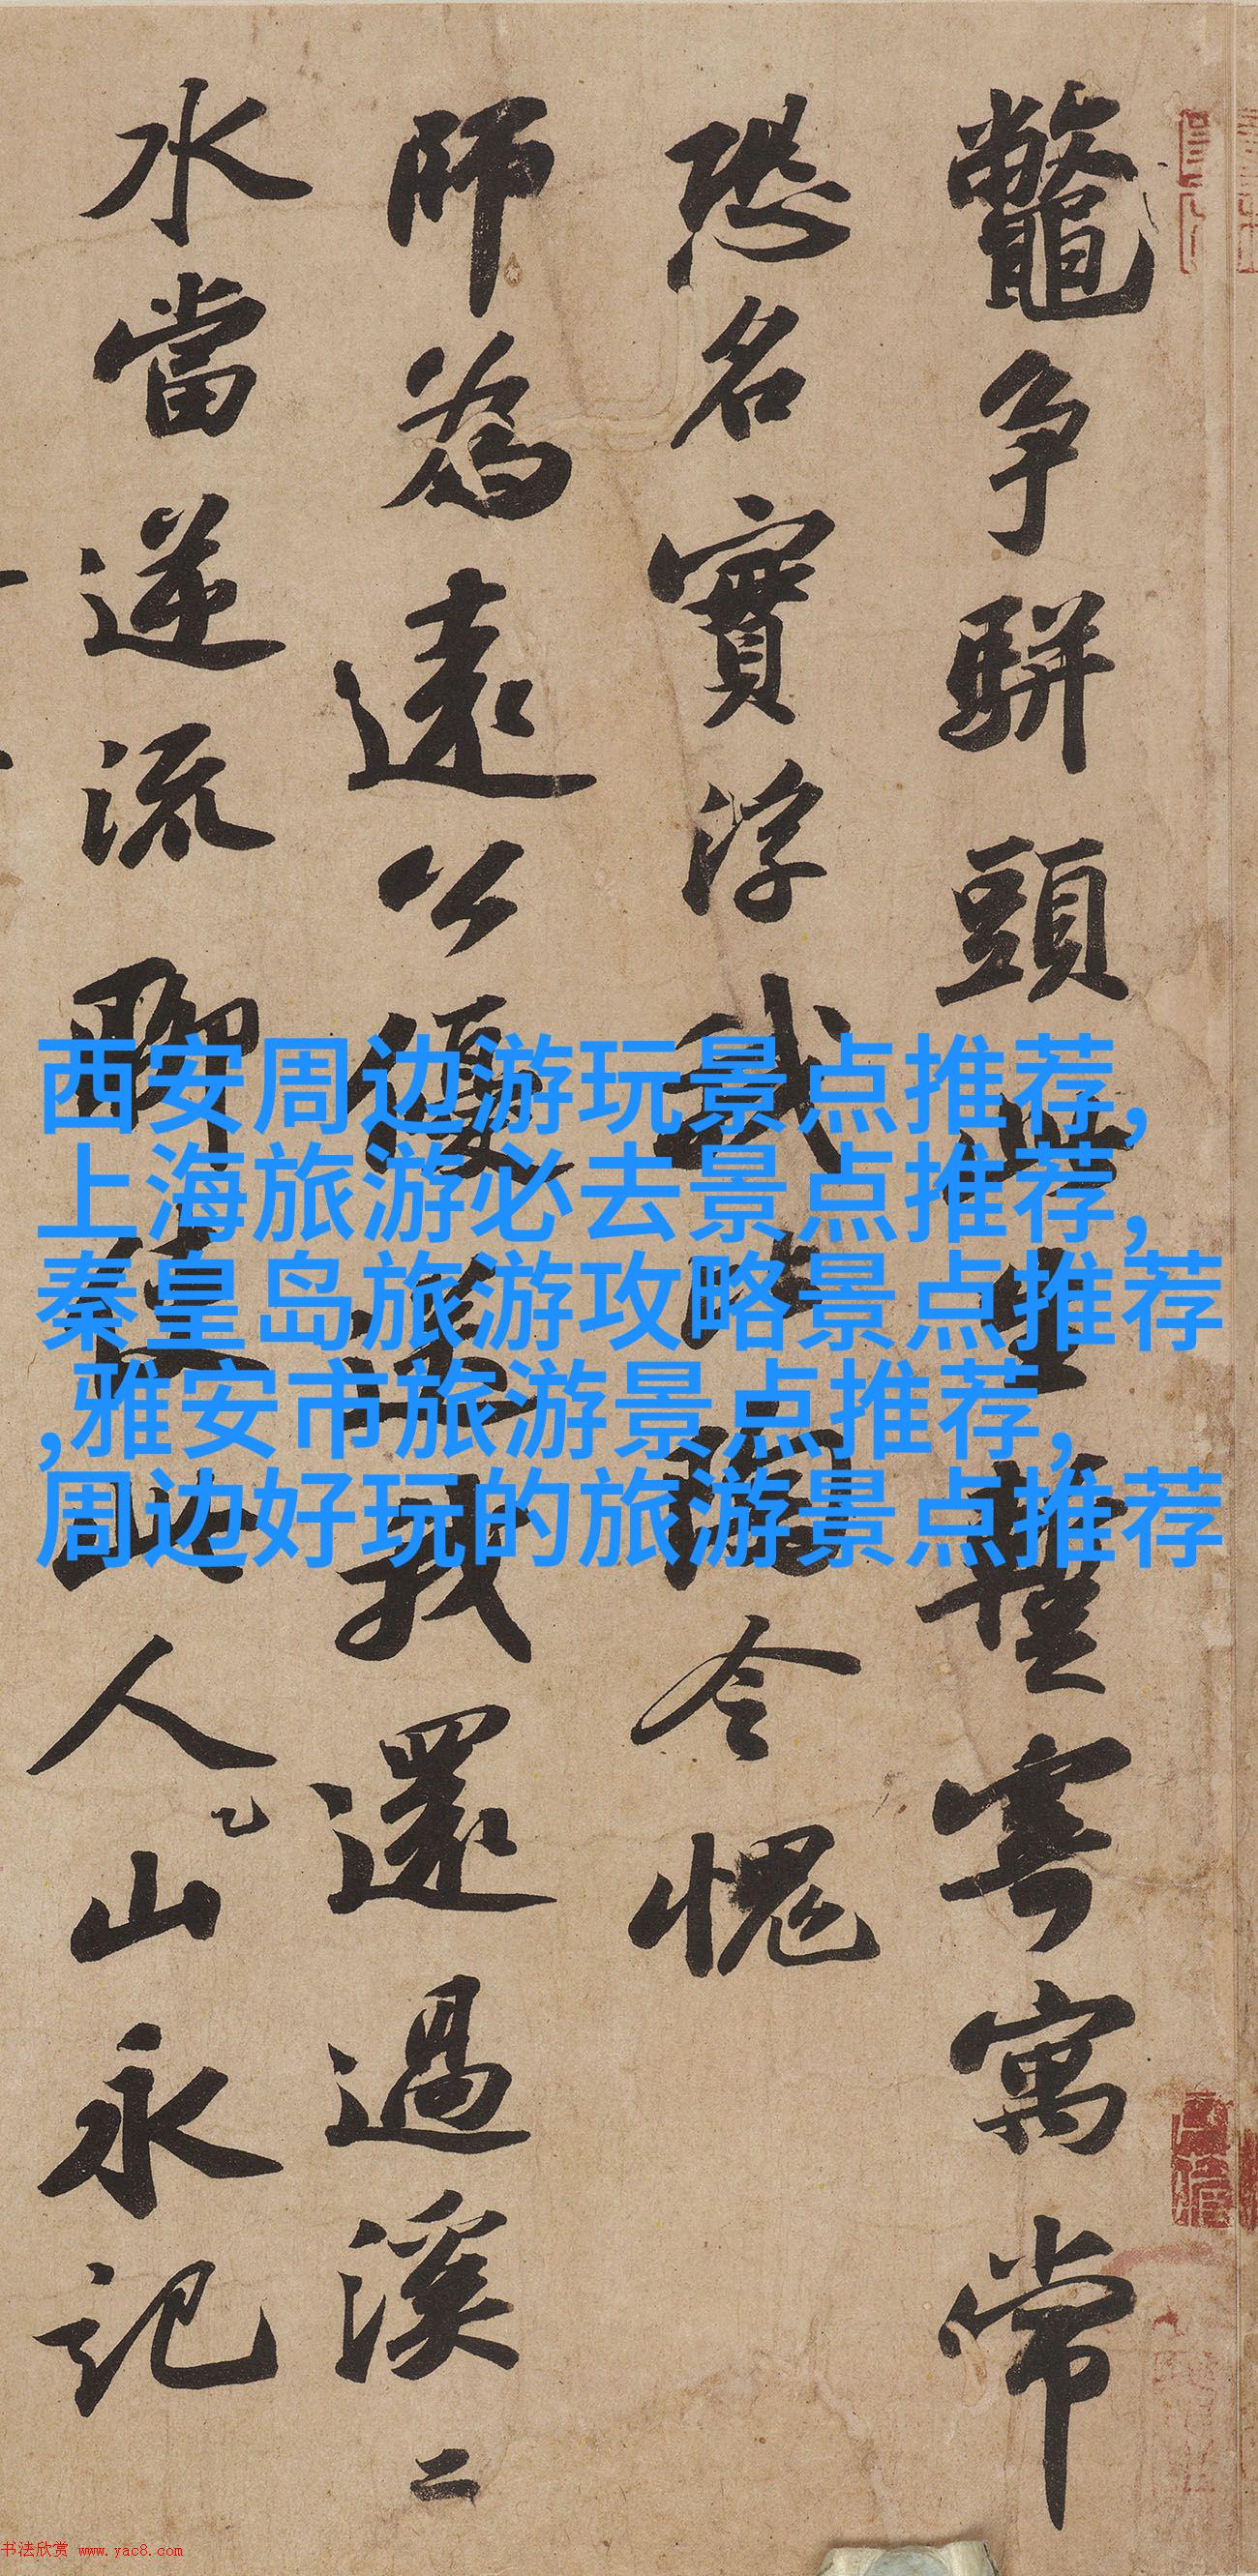 鼈争駢頭此生蹔寄寓常
恐名實浮我比陶令愧
師為遠公優送我還過溪二
水當逆流聊使此人山永記
西安周边游玩景点推荐,
上海旅游必去景点推荐,
秦皇岛旅游攻略景点推荐
,雅安市旅游景点推荐,
周边好玩的旅游景点推荐
书法欣赏 www.yac8.com